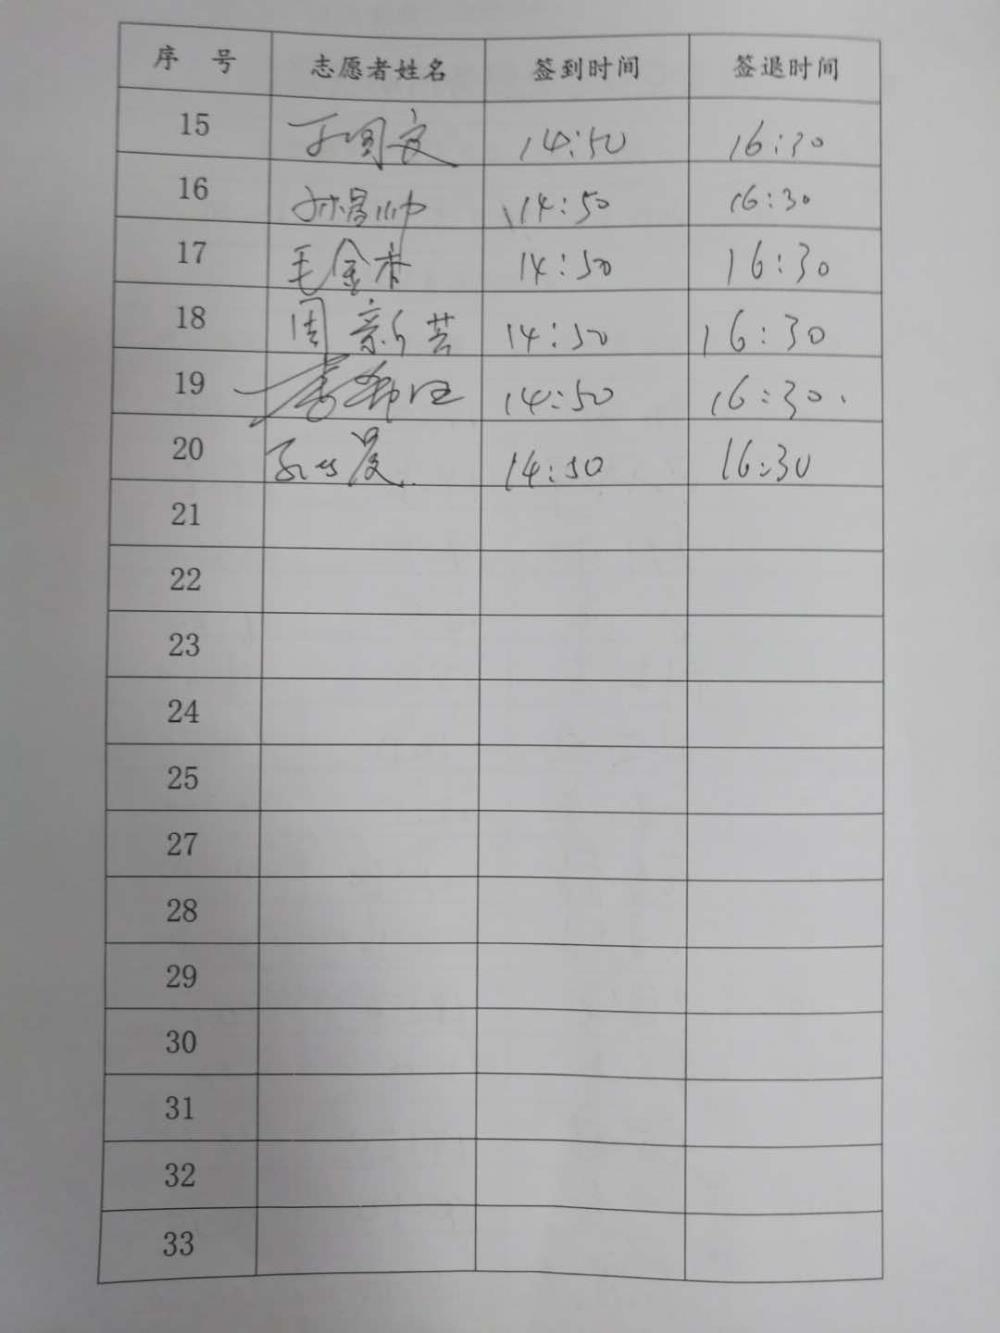 序 号 志愿者姓名 签到时间 签退时间
15 14:50 16:30
16 孙昌帅 14:50 16:30
17 毛金杏 14:50 16:30
18 周新芸 14:50 16:30
19 14:50 16:30
20 14:50 16:30
21
22
23
24
25
27
28
29
30
31
32
33